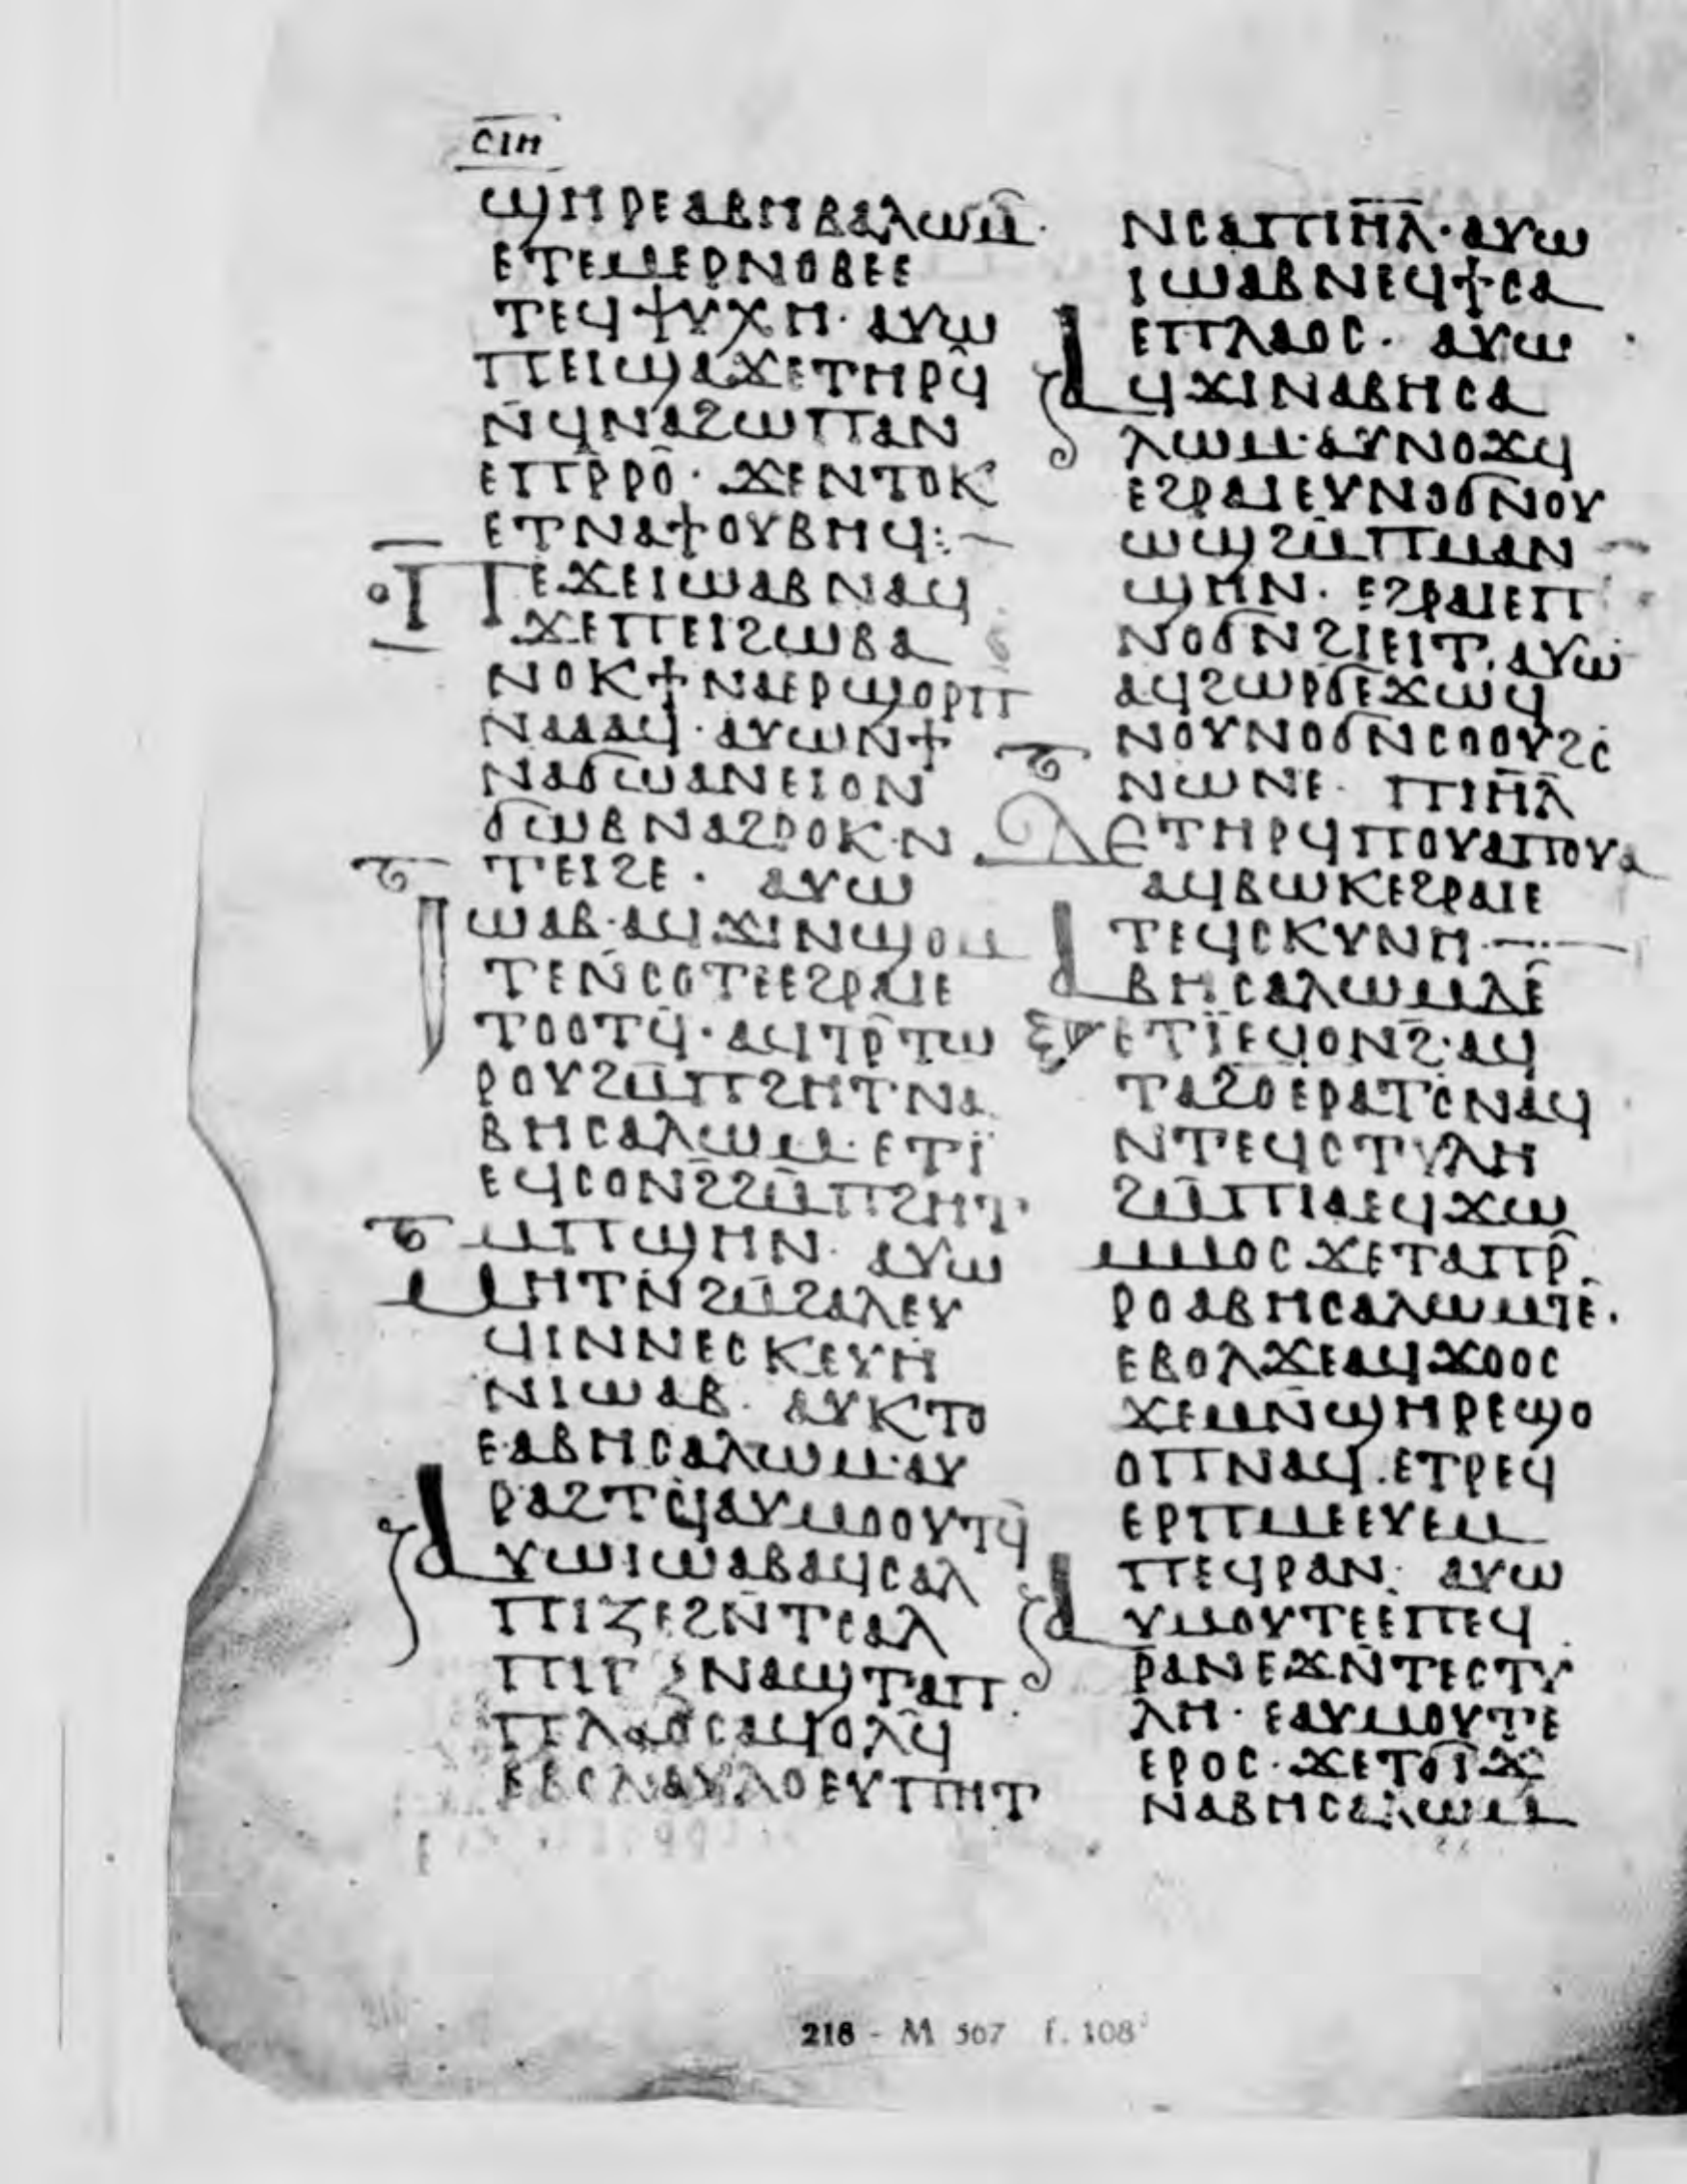 ⲥⲓⲏ
ϣⲏⲣⲉⲁⲃⲏⲃⲁⲗⲱⲙ̄·
ⲉⲧⲉⲙⲉⲣⲛⲟⲃⲉⲉ
ⲧⲉϥϯⲩⲭⲏ· ⲁⲩⲱ
ⲡⲉⲓϣⲁϫⲉⲧⲏⲣϥ̂
ⲛ̄ϥⲛⲁϩⲱⲡⲁⲛ
ⲉⲡⲣ̄ⲣⲟ̄· ϫⲉⲛⲧⲟⲕ
ⲉⲧⲛⲁϯⲟⲩⲃⲏϥ:
ⲡⲉϫⲉⲓⲱⲁⲃⲛⲁϥ
ϫⲉⲡⲉⲓϩⲱⲃⲁ
ⲛⲟⲕϯⲛⲁⲉⲣϣⲟⲣⲡ
ⲛⲁⲁⲁϥ· ⲁⲩⲱⲛϯ
ⲛⲁϭⲱⲁⲛⲉⲓⲟⲛ
ϭⲱⲃⲛⲁϩⲣⲟⲕ·ⲛ
ⲧⲉⲓϩⲉ· ⲁⲩⲱ
ⲓⲱⲁⲃ·ⲁϥϫⲓⲛϣⲟⲙ
ⲧⲉⲛ̄ⲥⲟⲧⲉⲉϩⲣⲁⲓⲉ
ⲧⲟⲟⲧϥ̄·ⲁϥⲧⲣ̄ⲧⲱ
ⲣⲟⲩϩⲙ̄ⲡϩⲏⲧ·ⲛⲁ
ⲃⲏⲥⲁⲗⲱⲙ·ⲉⲧⲓ̈
ⲉϥⲥⲟⲛϩ̄ϩⲙ̄ⲡϩⲏⲧ·
ⲙⲡϣⲏⲛ· ⲁⲩⲱ
ⲙⲏⲧⲛ̄ϩⲙ̄ϩⲁⲗⲉⲩ
ϥⲓⲛⲛⲉⲥⲕⲉⲩⲏ
ⲛⲓⲱⲁⲃ· ⲁⲩⲕⲧⲟ
ⲉⲁⲃⲏⲥⲁⲗⲱⲙ·ⲁⲩ
ⲣⲁϩⲧϥ̄ⲁⲩⲙⲟⲟⲩⲧϥ̄
ⲁⲩⲱⲓⲱⲁⲃⲁϥⲥⲁⲗ
ⲡⲓⲍⲉϩⲛ̄ⲧⲥⲁⲗ
ⲡⲓⲅⲝⲛⲁϣⲧⲁⲡ
ⲡⲗⲁⲟⲥⲁϥⲟⲗϥ̂
ⲉⲃⲟⲗⲛⲁⲩⲗⲟⲉⲩⲡⲏⲧ
ⲛⲥⲁⲡⲓⲏ̄ⲗ̄·ⲁⲩⲱ
ⲓⲱⲁⲃⲛⲉϥϯⲥⲁ
ⲉⲡⲗⲁⲟⲥ· ⲁⲩⲱ
ⲁϥϫⲓⲛⲁⲃⲏⲥⲁ
ⲗⲱⲙ·ⲁⲩⲛⲟϫϥ
ⲉϩⲣⲁⲓⲉⲩⲛⲟϭⲛⲟⲩ
ⲱϣϩⲙ̄ⲡⲙⲁⲛ
ϣⲏⲛ· ⲉϩⲣⲁⲓⲉⲡ
ⲛⲟϭⲛ̄ϩⲓⲉⲓⲧ·ⲁⲩⲱ
ⲁϥϩⲱⲣϭⲉϫⲱϥ
ⲛⲟⲩⲛⲟϭⲛⲥⲟⲟⲩϩⲥ
ⲛⲱⲛⲉ· ⲡⲓⲏ̄ⲗ̄
ⲇⲉⲧⲏⲣϥⲡⲟⲩⲁⲡⲟⲩⲁ
ⲁϥⲃⲱⲕⲉϩⲣⲁⲓⲉ
ⲧⲉϥⲥⲕⲩⲛⲏ·
ⲁⲃⲏⲥⲁⲗⲱⲙⲇⲉ
ⲉⲧⲓ̈ⲉϥⲟⲛϩ̄·ⲁϥ
ⲧⲁϩⲟⲉⲣⲁⲧⲥ̄ⲛⲁϥ
ⲛⲧⲉϥⲥⲧⲩⲗⲏ
ϩⲙ̄ⲡⲓⲁⲉϥϫⲱ
ⲙⲙⲟⲥϫⲉⲧⲁⲡⲣ̄
ⲣⲟⲁⲃⲏⲥⲁⲗⲱⲙⲧⲉ·
ⲉⲃⲟⲗϫⲉⲁϥϫⲟⲟⲥ
ϫⲉⲙⲛ̄ϣⲏⲣⲉϣⲟ
ⲟⲡⲛⲁϥ·ⲉⲧⲣⲉϥ
ⲉⲣⲡⲙⲉⲉⲩⲉⲙ
ⲡⲉϥⲣⲁⲛ· ⲁⲩⲱ
ⲁⲩⲙⲟⲩⲧⲉⲉⲡⲉϥ
ⲣⲁⲛⲉϫⲛ̄ⲧⲉⲥⲧⲩ
ⲗⲏ· ⲉⲁⲩⲙⲟⲩⲧⲉ
ⲉⲣⲟⲥ·ϫⲉⲧϭⲓϫ
ⲛⲁⲃⲏⲥⲁⲗⲱⲙ
216 - M 567 f. 108